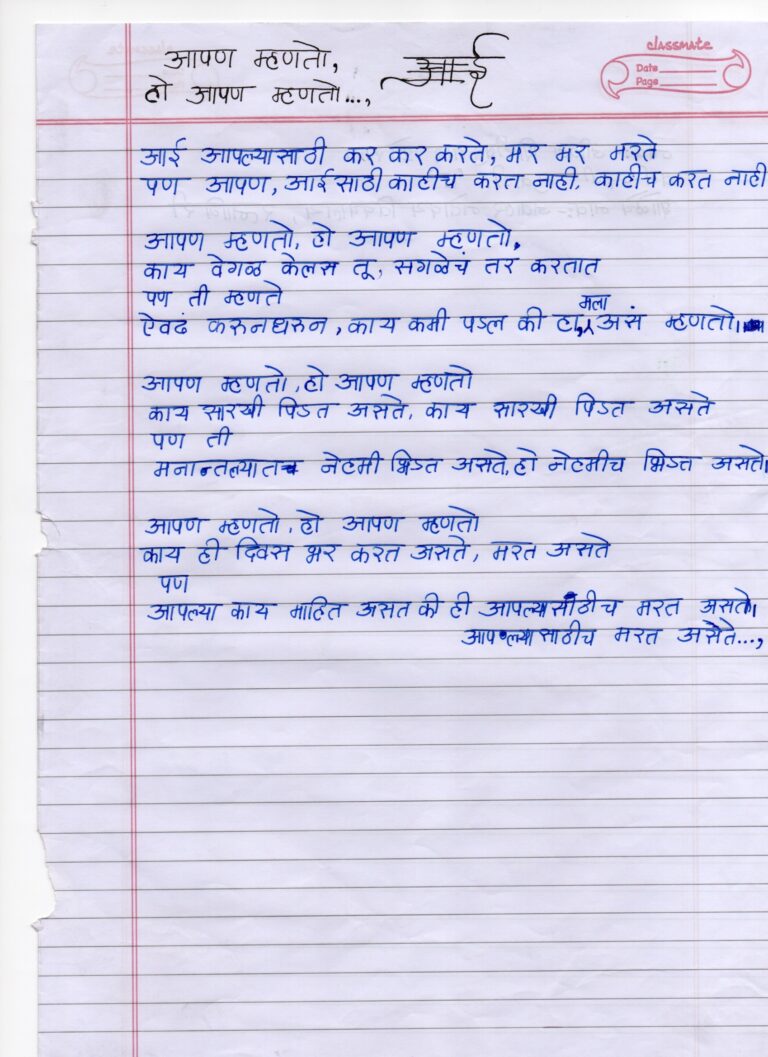 आपण म्हणतो,
हो आपण म्हणतो...,
आई
classmate
Date
Page
आई आपल्यासाठी कर कर करते, मर मर मरते
पण आपण, आईसाठी काहीच करत नाही. काहीच करत नाही
आपण म्हणतो, हो आपण म्हणतो,
काय वेगळ केलस तू, सगळेचं तर करतात
पण ती म्हणते
ऐवढं करुनधरुन, काय कमी पडल की हा, मला असं म्हणतो।
आपण म्हणतो, हो आपण म्हणतो
काय सारखी पिडत असते, काय सारखी पिडत असते
पण ती
मनान्तल्यातच नेहमी भिडत असते, हो नेहमीच भिडत असते।
आपण म्हणतो, हो आपण म्हणतो
काय ही दिवस भर करत असते, मरत असते
पण
आपल्या काय माहित असत की ही आपल्यासाठीच मरत असते।
आपल्यासाठीच मरत असते...,